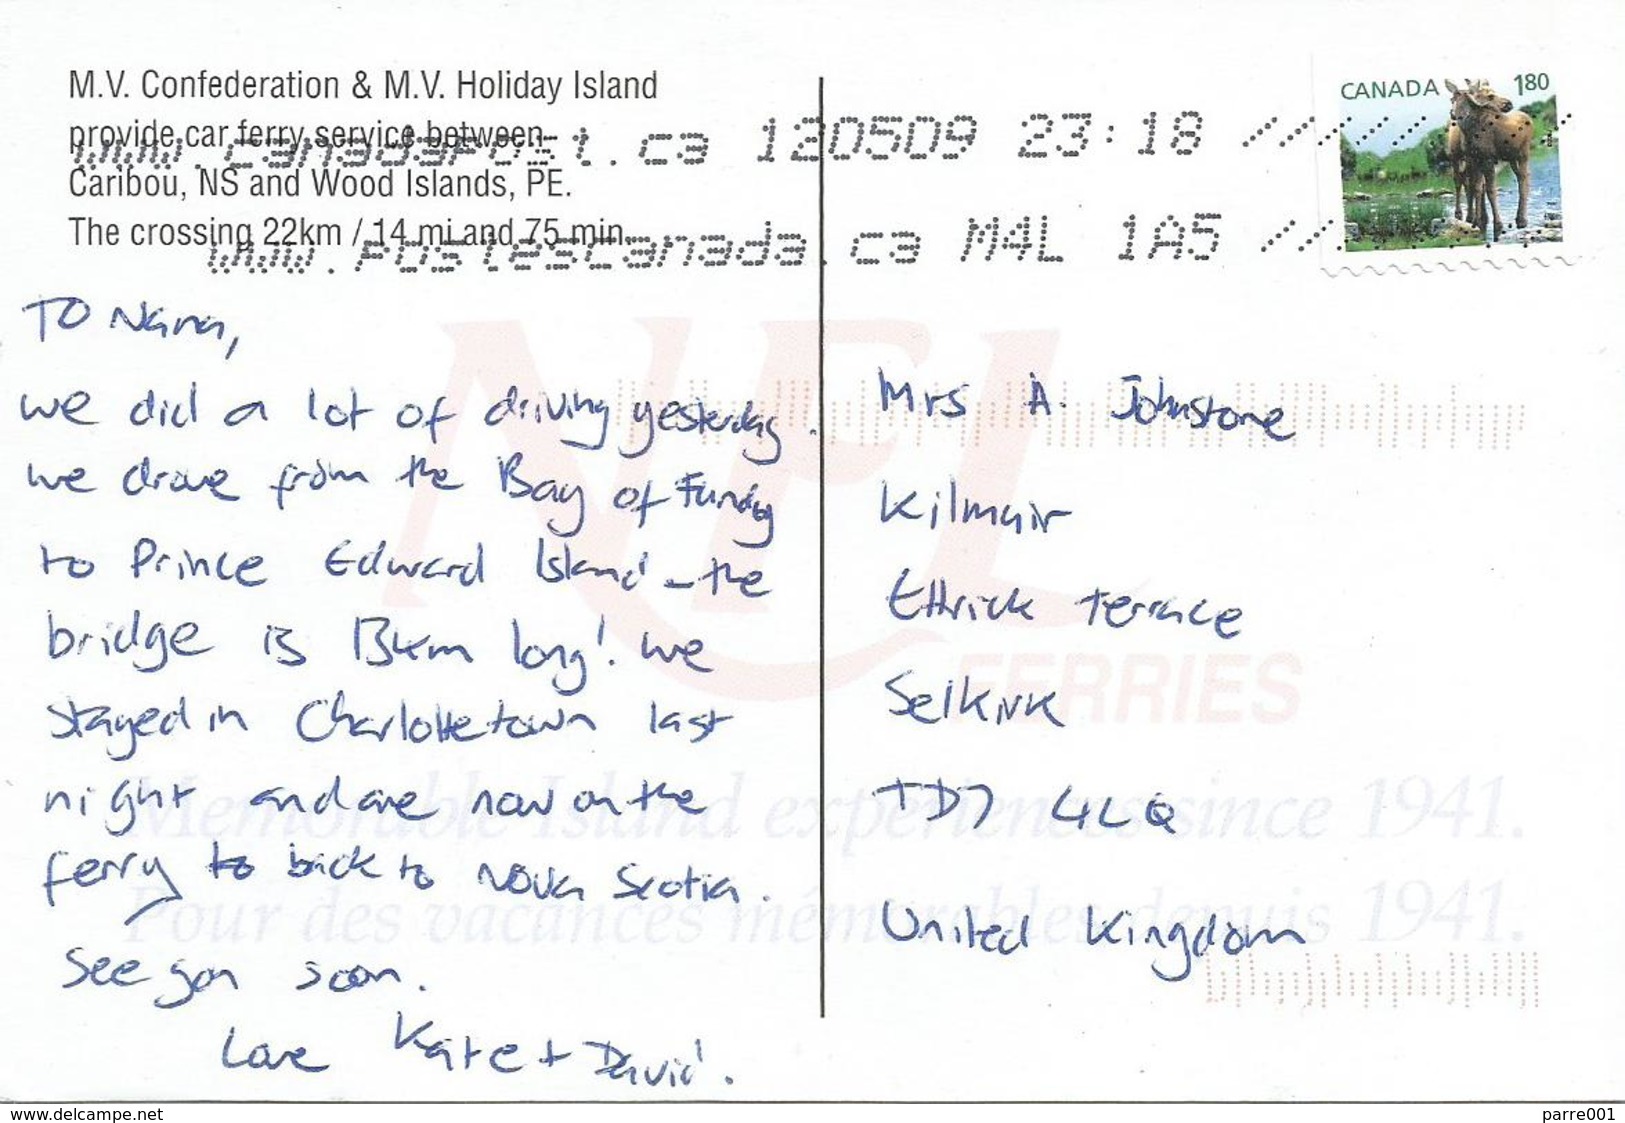 M.V. Confederation & M.V. Holiday Island
provide car ferry service between
Caribou, NS and Wood Islands, PE.
The crossing 22km / 14 mi and 75 min.
www.canadaPost.ca 120509 23:18
www.PostesCanada.ca M4L 1A5
CANADA 180
TO Nana,
we did a lot of driving yesterday.
we drove from the Bay of Fundy
to Prince Edward Island - the
bridge is 13km long! we
stayed in Charlottetown last
night and are now on the
ferry to back to Nova Scotia.
See you soon.
Love Kate + David.
Mrs A. Johnstone
Kilmuir
Ettrick Terrace
Selkirk
TD7 4LQ
United Kingdom
NFL
FERRIES
Memorable Island experiences since 1941.
Pour des vacances mémorables depuis 1941.
www.delcampe.net
parre001